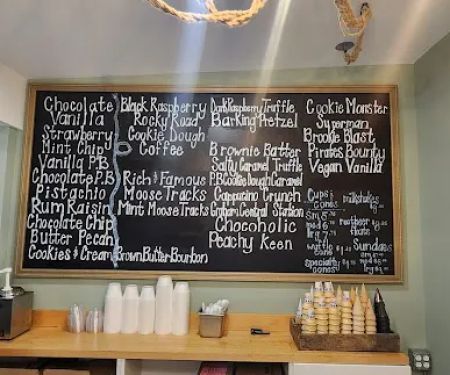 Chocolate
Vanilla
Strawberry
Mint Chip
Vanilla P.B
Chocolate P.B
Pistachio
Rum Raisin
Chocolate Chip
Butter Pecan
Cookies & Cream
Black Raspberry
Rocky Road
Cookie Dough
Coffee
Rich & Famous
Moose Tracks
Mint Moose Tracks
Brown Butter Bourbon
Dark Raspberry Truffle
Barking Pretzel
Brownie Batter
Salty Caramel Truffle
P.B Cookie Dough Caramel
Cappucino Crunch
Graham Central Station
Chocoholic
Peachy Keen
Cookie Monster
Superman
Brookie Blast
Pirates Bounty
Vegan Vanilla
Cups &
Cones
sm 5.
med 6.
lrg 7.
waffle
cone
specialty
cones
milkshakes
rootbeer
floats
Sundaes
sm
med
lrg